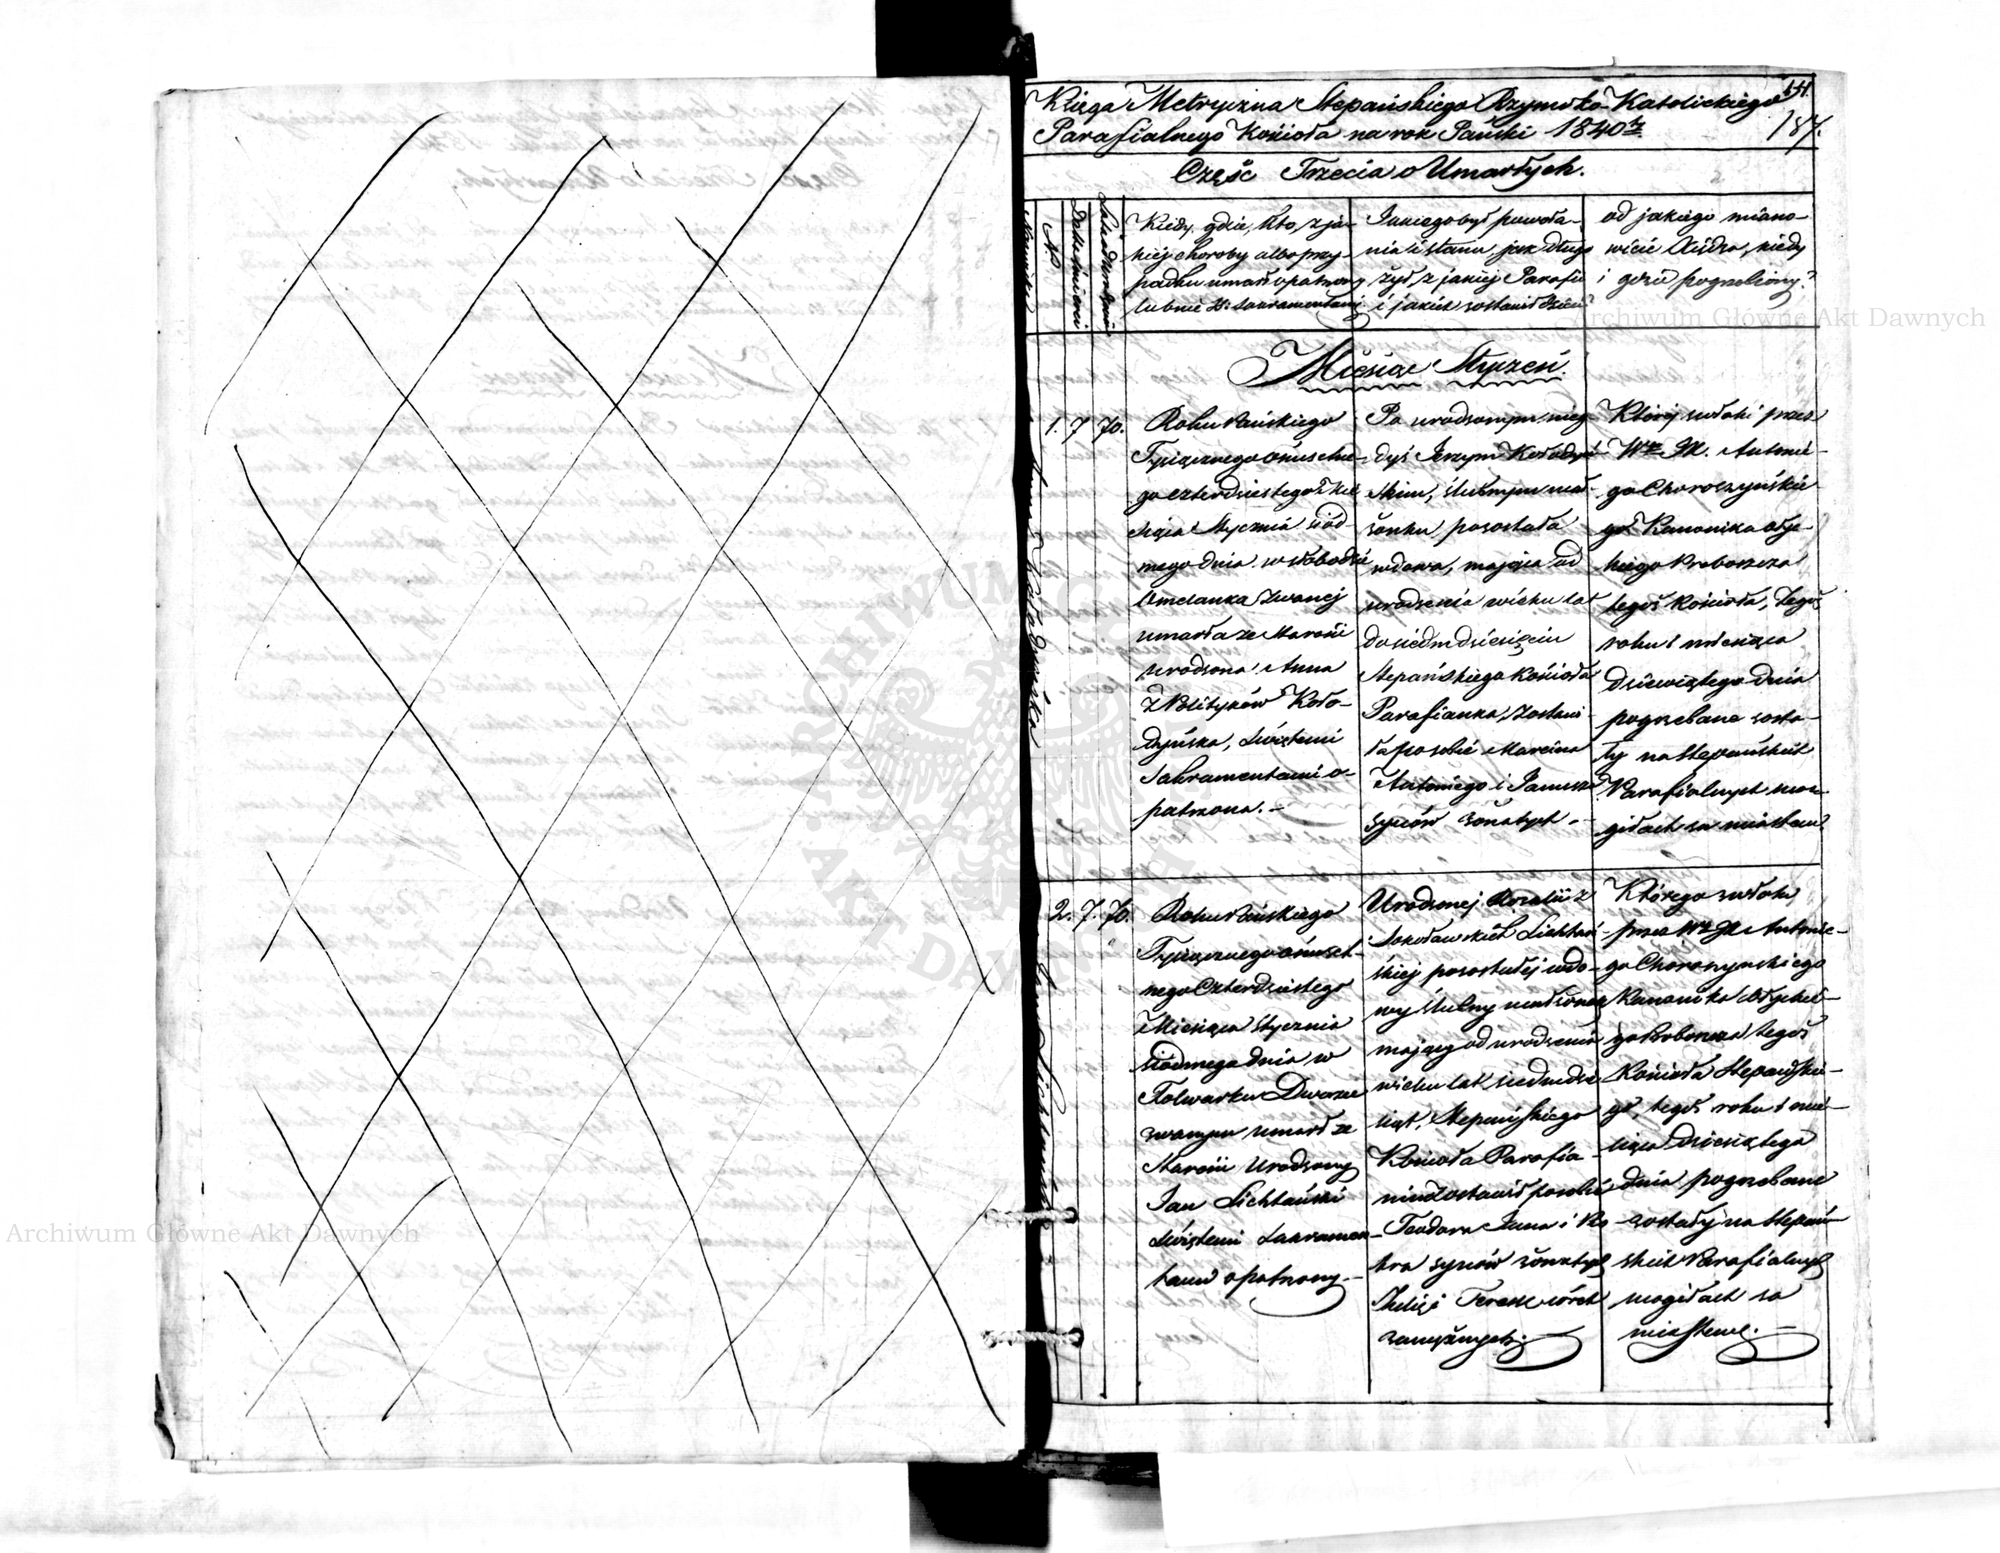 Księga Metryczna Stepańskiego Rzymsko-Katolickiego
Parafialnego Kościoła na rok Pański 1840ty
187.
Część Trzecia o Umarłych.
Kiedy, gdzie, kto, z ja-
kiej choroby albo przy-
padku umarł opatrzony
lub nie Ś. Sakramentami
Jakiego był powoła-
nia i stanu, jak długo
żył, z jakiej Parafii
i jakich zostawił dzieci?
od jakiego miano-
wicie Xiędza, kiedy
i gdzie pogrzebiony?
Miesiąc Styczeń.
1. 7 70.
Roku Pańskiego
Tysiącznego ośmsetne-
go czterdziestego Mie-
siąca Stycznia siód-
mego dnia, w słobodzie
Omelanka zwanej
umarła ze starości
urodzona Anna
z Polityków Koło-
dyńska, Świętemi
Sakramentami o-
patrzona.-
Po urodzonym nieg-
dyś Jerzym Kołodyń-
skim, ślubnym mał-
żonku pozostała
wdowa, mająca od
urodzenia wieku lat
do siedmdziesięciu
Stepańskiego Kościoła
Parafianka, zostawi-
ła po sobie Marcina
Antoniego i
synów żonatych.-
Której zwłoki przez
W JX. Antonie-
go Choroszyńskie-
go Kanonika Ołyc-
kiego Proboszcza
tegoż Kościoła, tegoż
roku i miesiąca
dziewiątego dnia
pogrzebane zosta-
ły na Stepańskich
Parafialnych mo-
giłach za miastem
2. 7. 70.
Roku Pańskiego
Tysiącznego ośmset-
nego Czterdziestego
Miesiąca Stycznia
siódmego dnia w
Folwarku
zwanym umarł ze
starości Urodzony
Jan Lichtański
Świętemi Sakramen-
tami opatrzony.-
Urodzonej Rozalii z
Sokołowskich Lichtań-
skiej pozostałej wdo-
wy ślubny małżonek
mający od urodzenia
wieku lat siedmdzie-
siąt, Stepańskiego
Kościoła Parafia-
nin zostawił po sobie
Teodora Jana i Pio-
tra synów żonatych
i Teresę córek
zamężnych.
Którego zwłoki
przez W JX Antonie-
go Choroszyńskiego
Kanonika Ołyckie-
go Proboszcza tegoż
Kościoła Stepańskie-
go, tegoż roku i mie-
siąca dziesiątego
dnia pogrzebane
zostały na Stepań-
skich Parafialnych
mogiłach za
miastem.-
Anna Kołodyńska
Jan Lichtański
Archiwum Główne Akt Dawnych
Archiwum Główne Akt Dawnych
ARCHIWUM GŁÓWNE AKT DAWNYCH